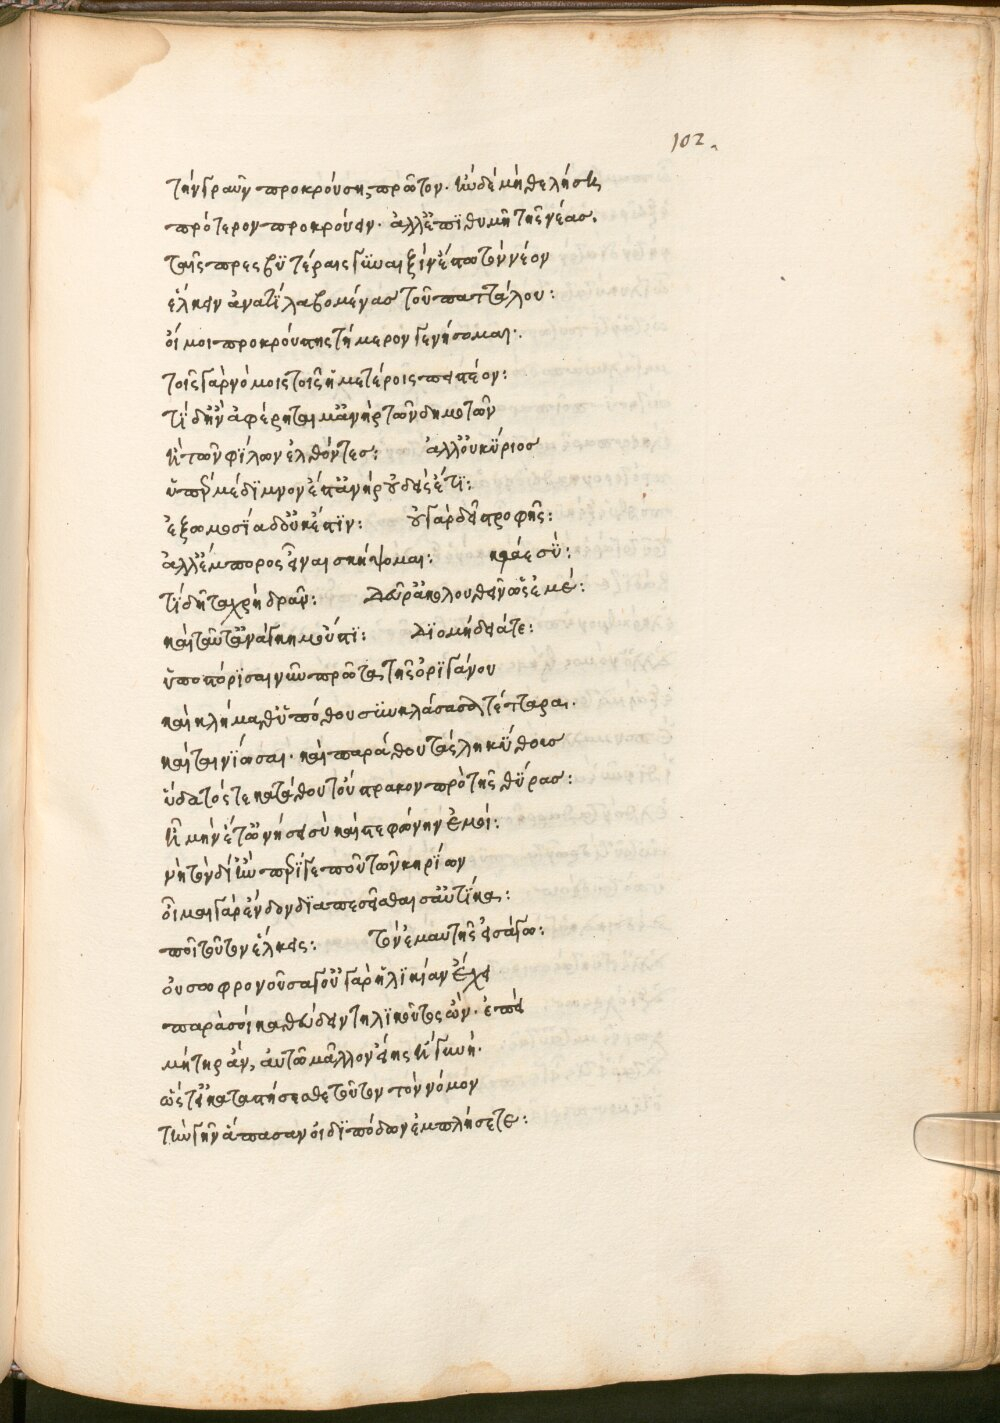 102.
τὴν γραῦν προκρούσης πρῶτον. ἢν δὲ μὴ θελήσῃ
πρότερον προκρούειν. ἀλλ' ἐπϊθυμῇ τῆς νέας.
ταῖς πρεσβϋτέραις γϋναιξὶν ἔστω τὸν νέον
ἕλκειν ἀνατὶ λαβομένας τοῦ παττάλου:
οἴμοι προκρούστης τήμερον γενήσομαι.
τοῖς γὰρ νόμοις τοῖς ἡμετέροις πειστέον:
τί δ' ἢν ἀφέρηταί μ' ἀνὴρ τῶν δημοτῶν
ἢ τῶν φίλων ἐλθόντες: ἀλλ' οὐ κύριος
ὑπὲρ μέδϊμνον ἔστ' ἀνὴρ οὐδεὶς ἔτϊ:
ἐξωμοσία δ' οὐκ ἔστϊν: οὐ γὰρ δεῖ στροφῆς:
ἀλλ' ἔμπορος εἶναι σκήψομαι: κλάε σύ:
τί δῆτα χρὴ δρᾶν: δεῦρ' ἀκολουθεῖν ὡς ἐμέ:
καὶ ταῦτ' ἀνάγκη μοὐστί: Διομήδειά τε:
ὑποστόρϊσαι νῦν πρῶτα τῆς ὀρϊγάνου
καὶ κλήμαθ' ὑπόθου σϋνκλάσασα τέτταρα.
καὶ ταινίασαι. καὶ παράθου τὰς ληκϋθους
ὕδατός τε κατάθου τοὔστρακον πρὸ τῆς θύρας:
ἦ μὴν ἔτ' ὠνήσει σὺ καὶ στεφάνην ἐμοί:
νὴ τὸν δί' ἐὰν περ ᾖ γέ που τῶν κηρίων
οἶμαι γὰρ ἔνδον διαπεσεῖσθαί σ' αὐτίκα:
ποῖ τοῦτον ἕλκεις: τὸν ἐμαυτῆς εἰσάγω:
οὐ σωφρονοῦσα γ' οὐ γὰρ ἡλϊκίαν ἔχει
παρὰ σοὶ καθεύδειν τηλϊκοῦτος ὤν. ἐπεὶ
μήτηρ ἂν, αὐτῷ μᾶλλον εἴης ἢ γυνή.
ὥστ' εἰ καταστήσεσθε τοῦτον τὸν νόμον
τὴν γῆν ἅπασαν οἰδϊπόδων ἐμπλήσετε: